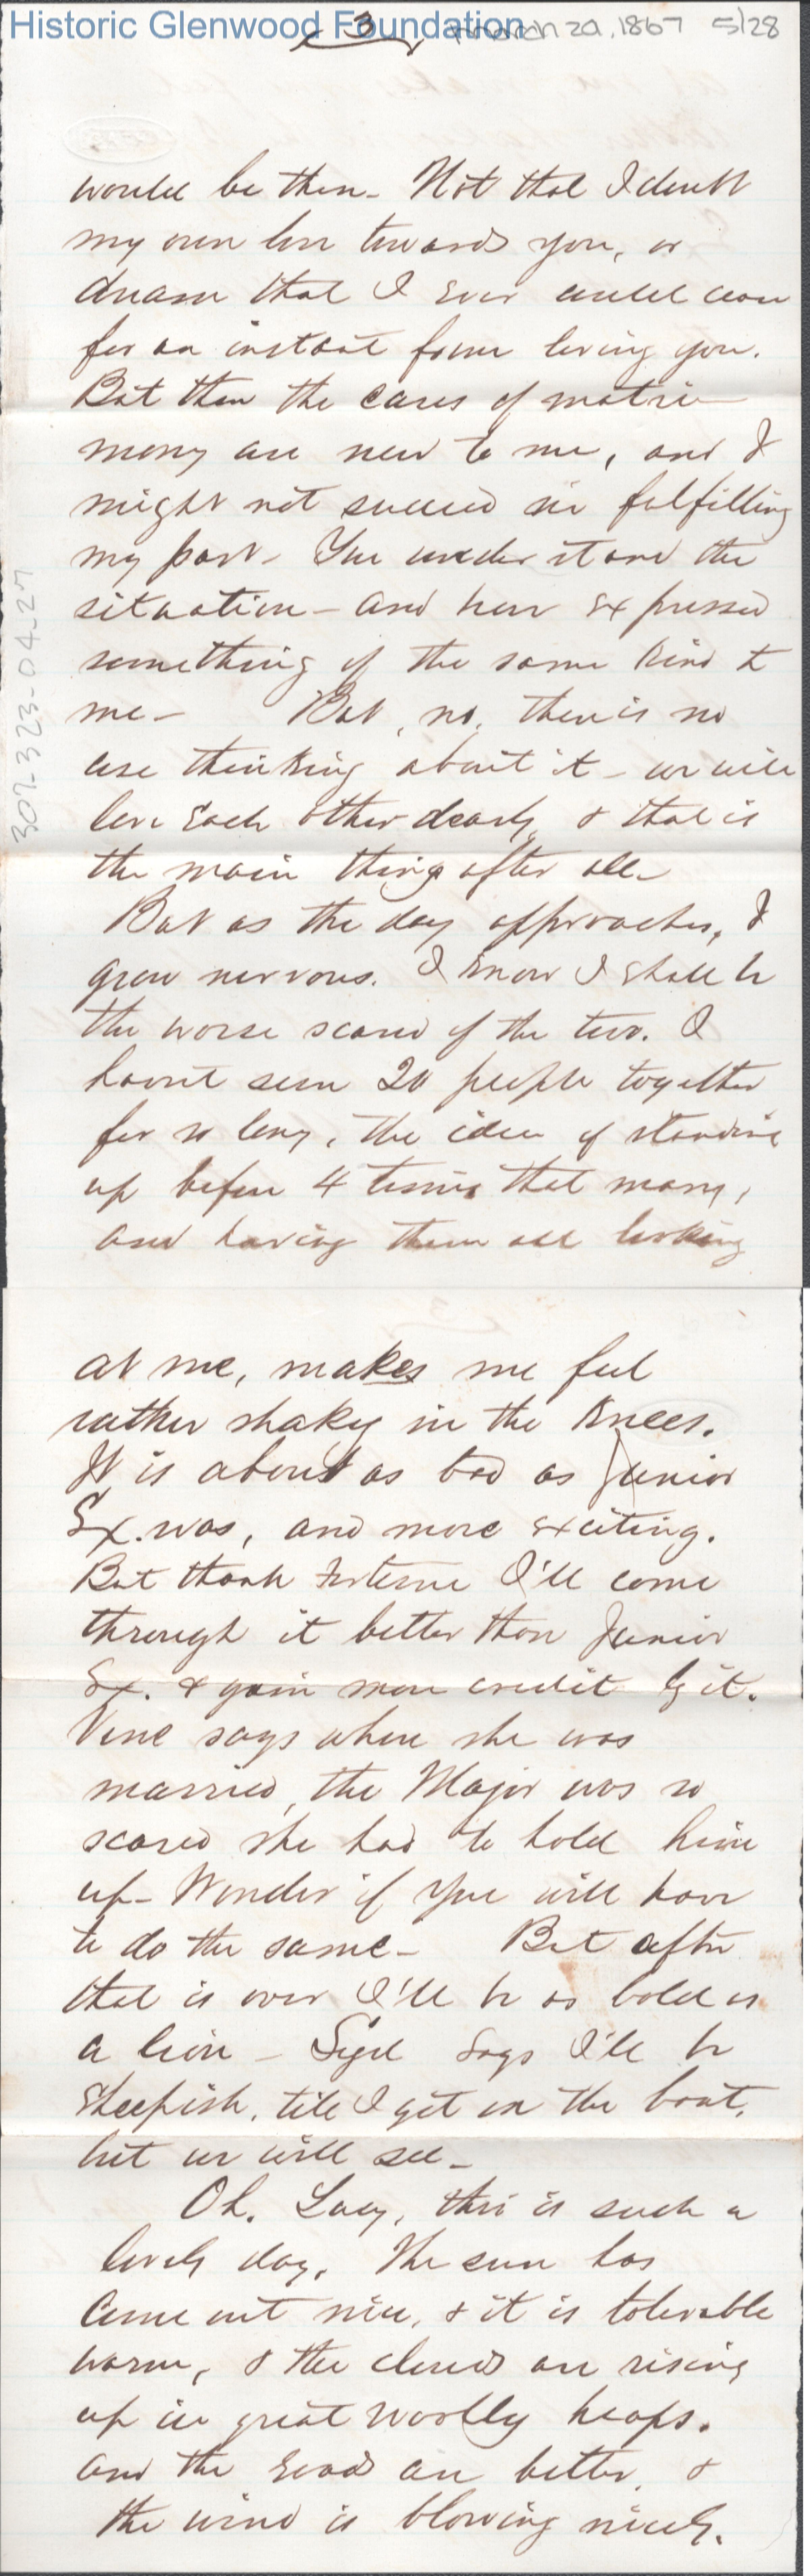 Historic Glenwood Foundation
3
March 20, 1867 5/28
307-323-04-27
would be then - Not that I doubt
my own love towards you, or
dream that I ever could cease
for an instant from loving you.
But then the cares of matri-
mony are new to me, and I
might not succeed in fulfilling
my part - You understand the
situation - and have expressed
something of the same kind to
me - But, no, there is no
use thinking about it - we will
love Each other dearly, & that is
the main thing after all -
But as the day approaches, I
grow nervous. I know I shall be
the worse scared of the two. I
havnt seen 20 people together
for so long, the idea of standing
up before 4 times that many,
and having them all looking
at me, makes me feel
rather shaky in the Knees.
It is about as bad as Junior
Ex. was, and more exciting.
But thank fortune I'll come
through it better than Junior
Ex. & gain more credit by it.
Vine says when she was
married, the Major was so
scared she had to hold him
up - Wonder if you will have
to do the same - But after
that is over I'll be as bold as
a lion - Syd says I'll be
Sheepish, till I get on the boat,
but we will see -
Oh. Lucy, this is such a
lovely day. The sun has
come out nice, & it is tolerable
warm, & the clouds are rising
up in great woolly heaps.
And the roads are better, &
the wind is blowing nicely.